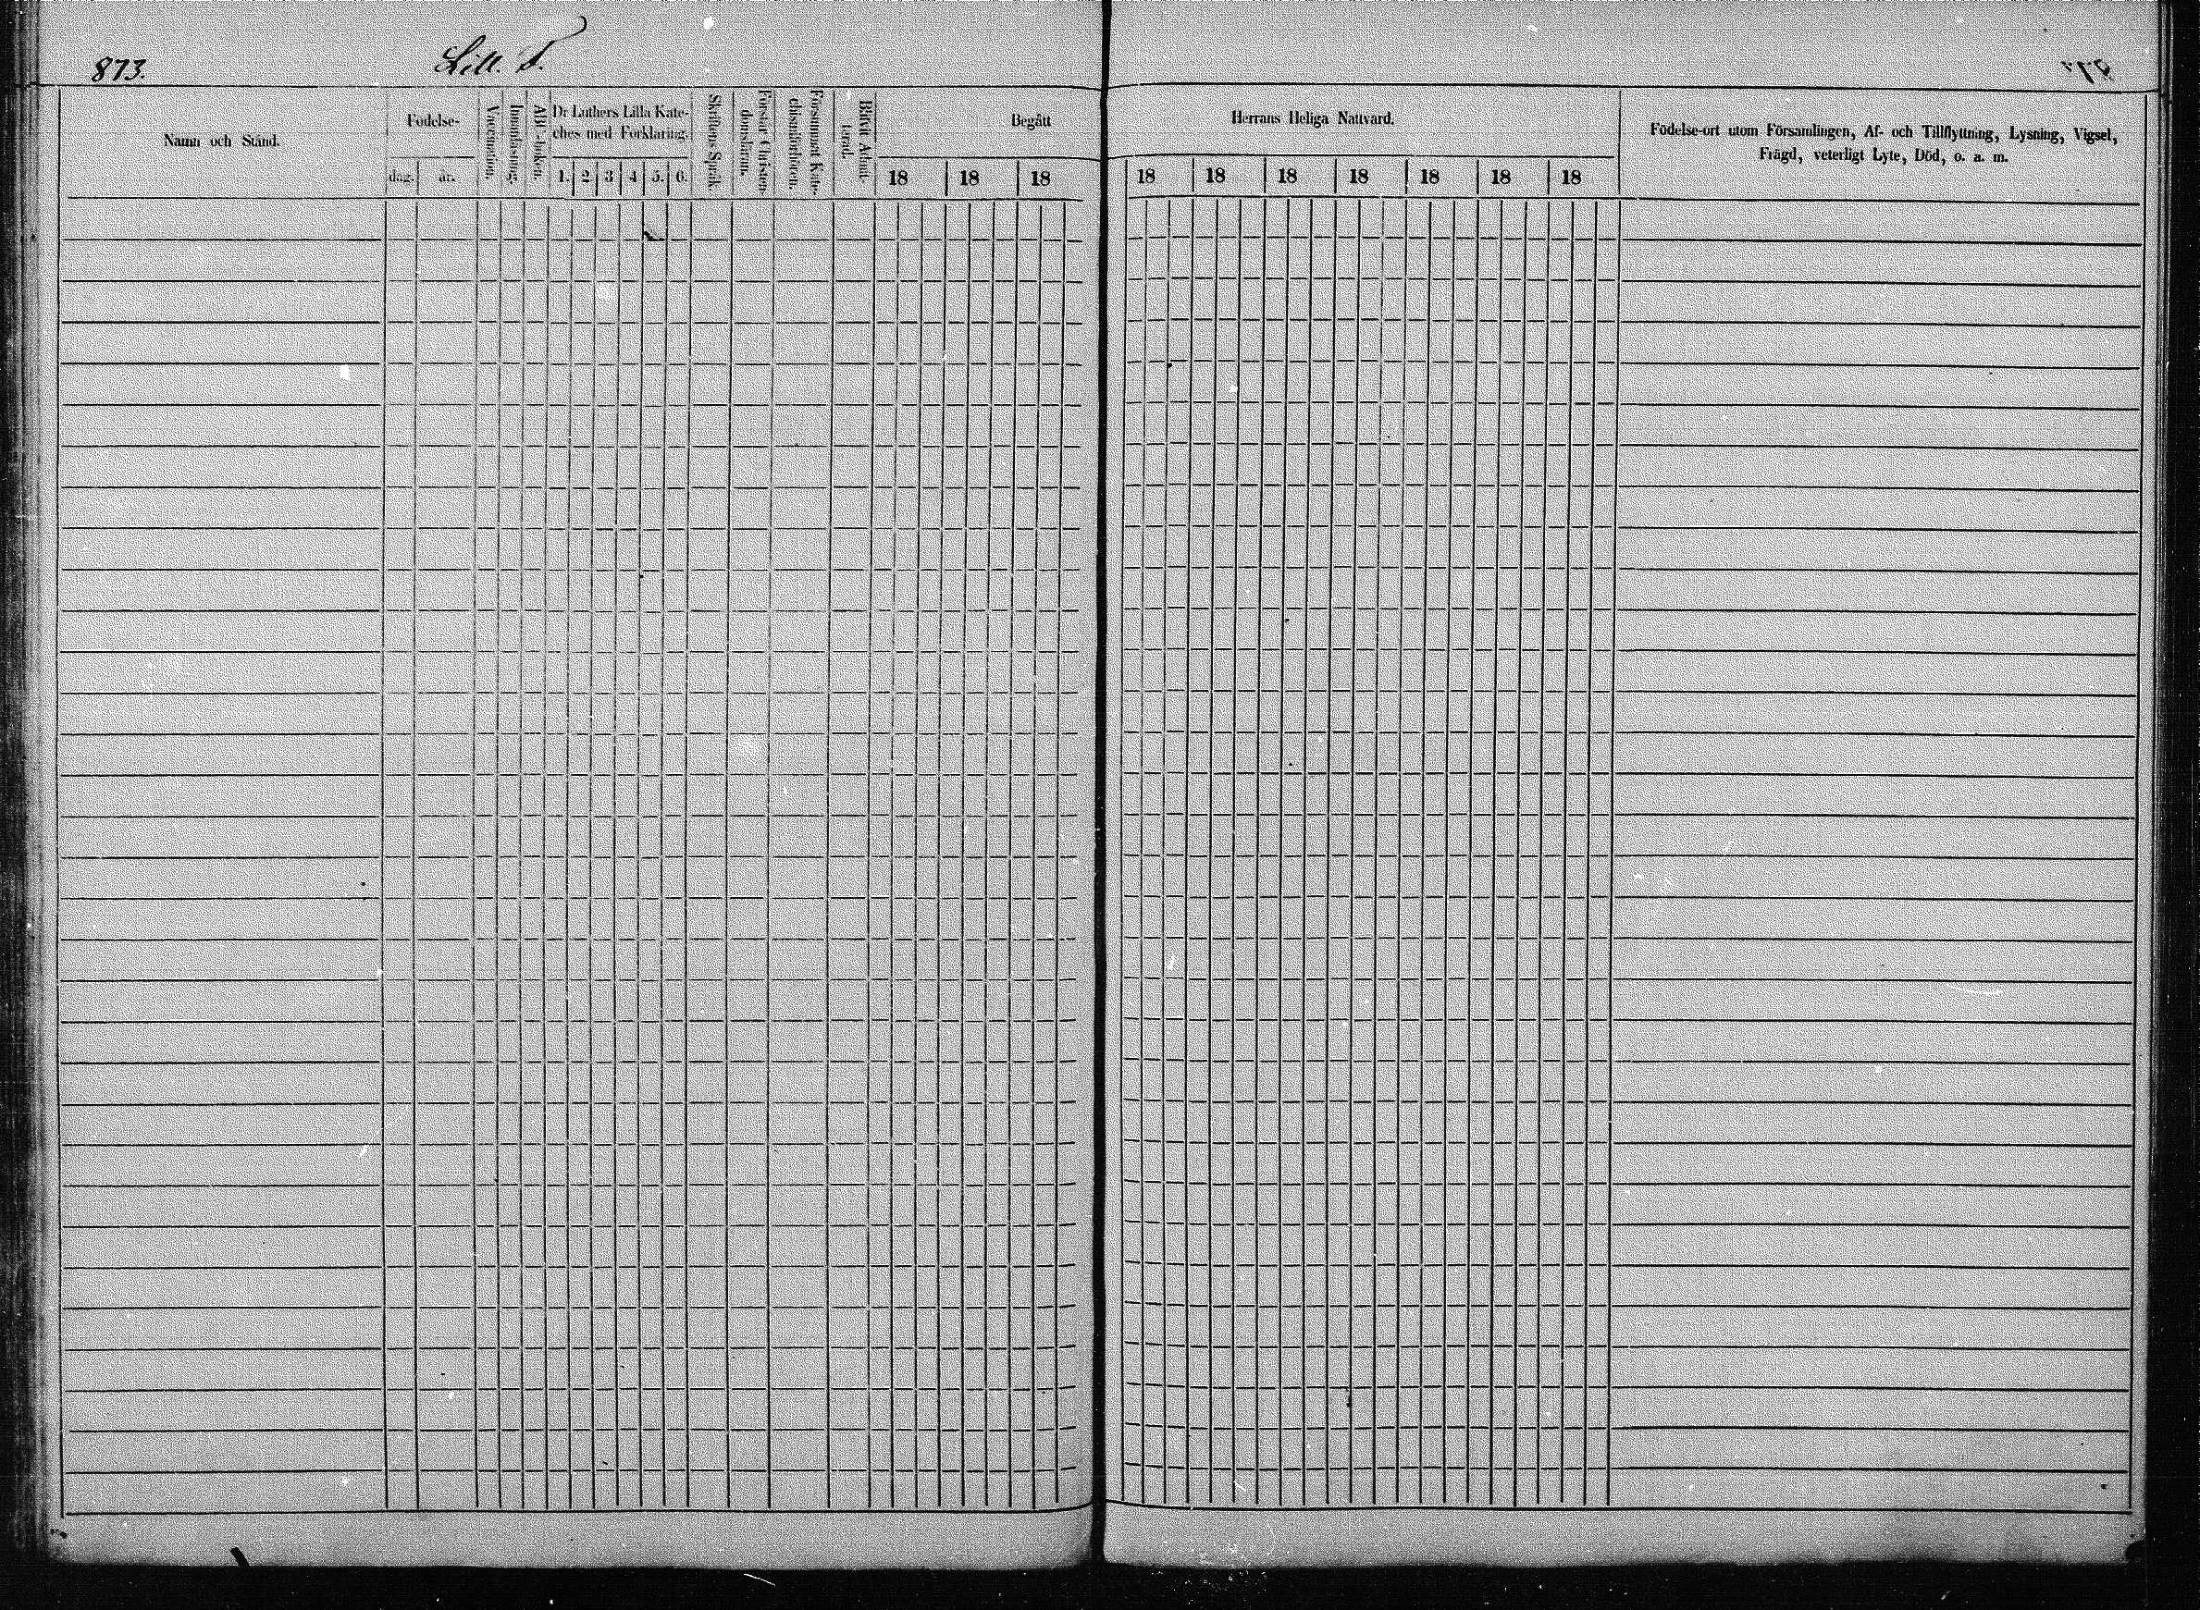 873.
Litt. T.
Namn och Stånd.
Födelse-
dag. år.
Vaccination.
Innanläsning.
ABC-boken.
Dr Luthers Lilla Kate-
ches med Förklaring.
1. 2. 3 4 5. 6.
Skriftens Språk.
Förstår Christen-
domsläran.
Försummat Kate-
chismiförhören.
Blifvit Admit-
terad.
Begått
18 18 18
Herrans Heliga Nattvard.
18 18 18 18 18 18 18
Födelse-ort utom Församlingen, Af- och Tillflyttning, Lysning, Vigsel,
Frägd, veterligt Lyte, Död, o. a. m.